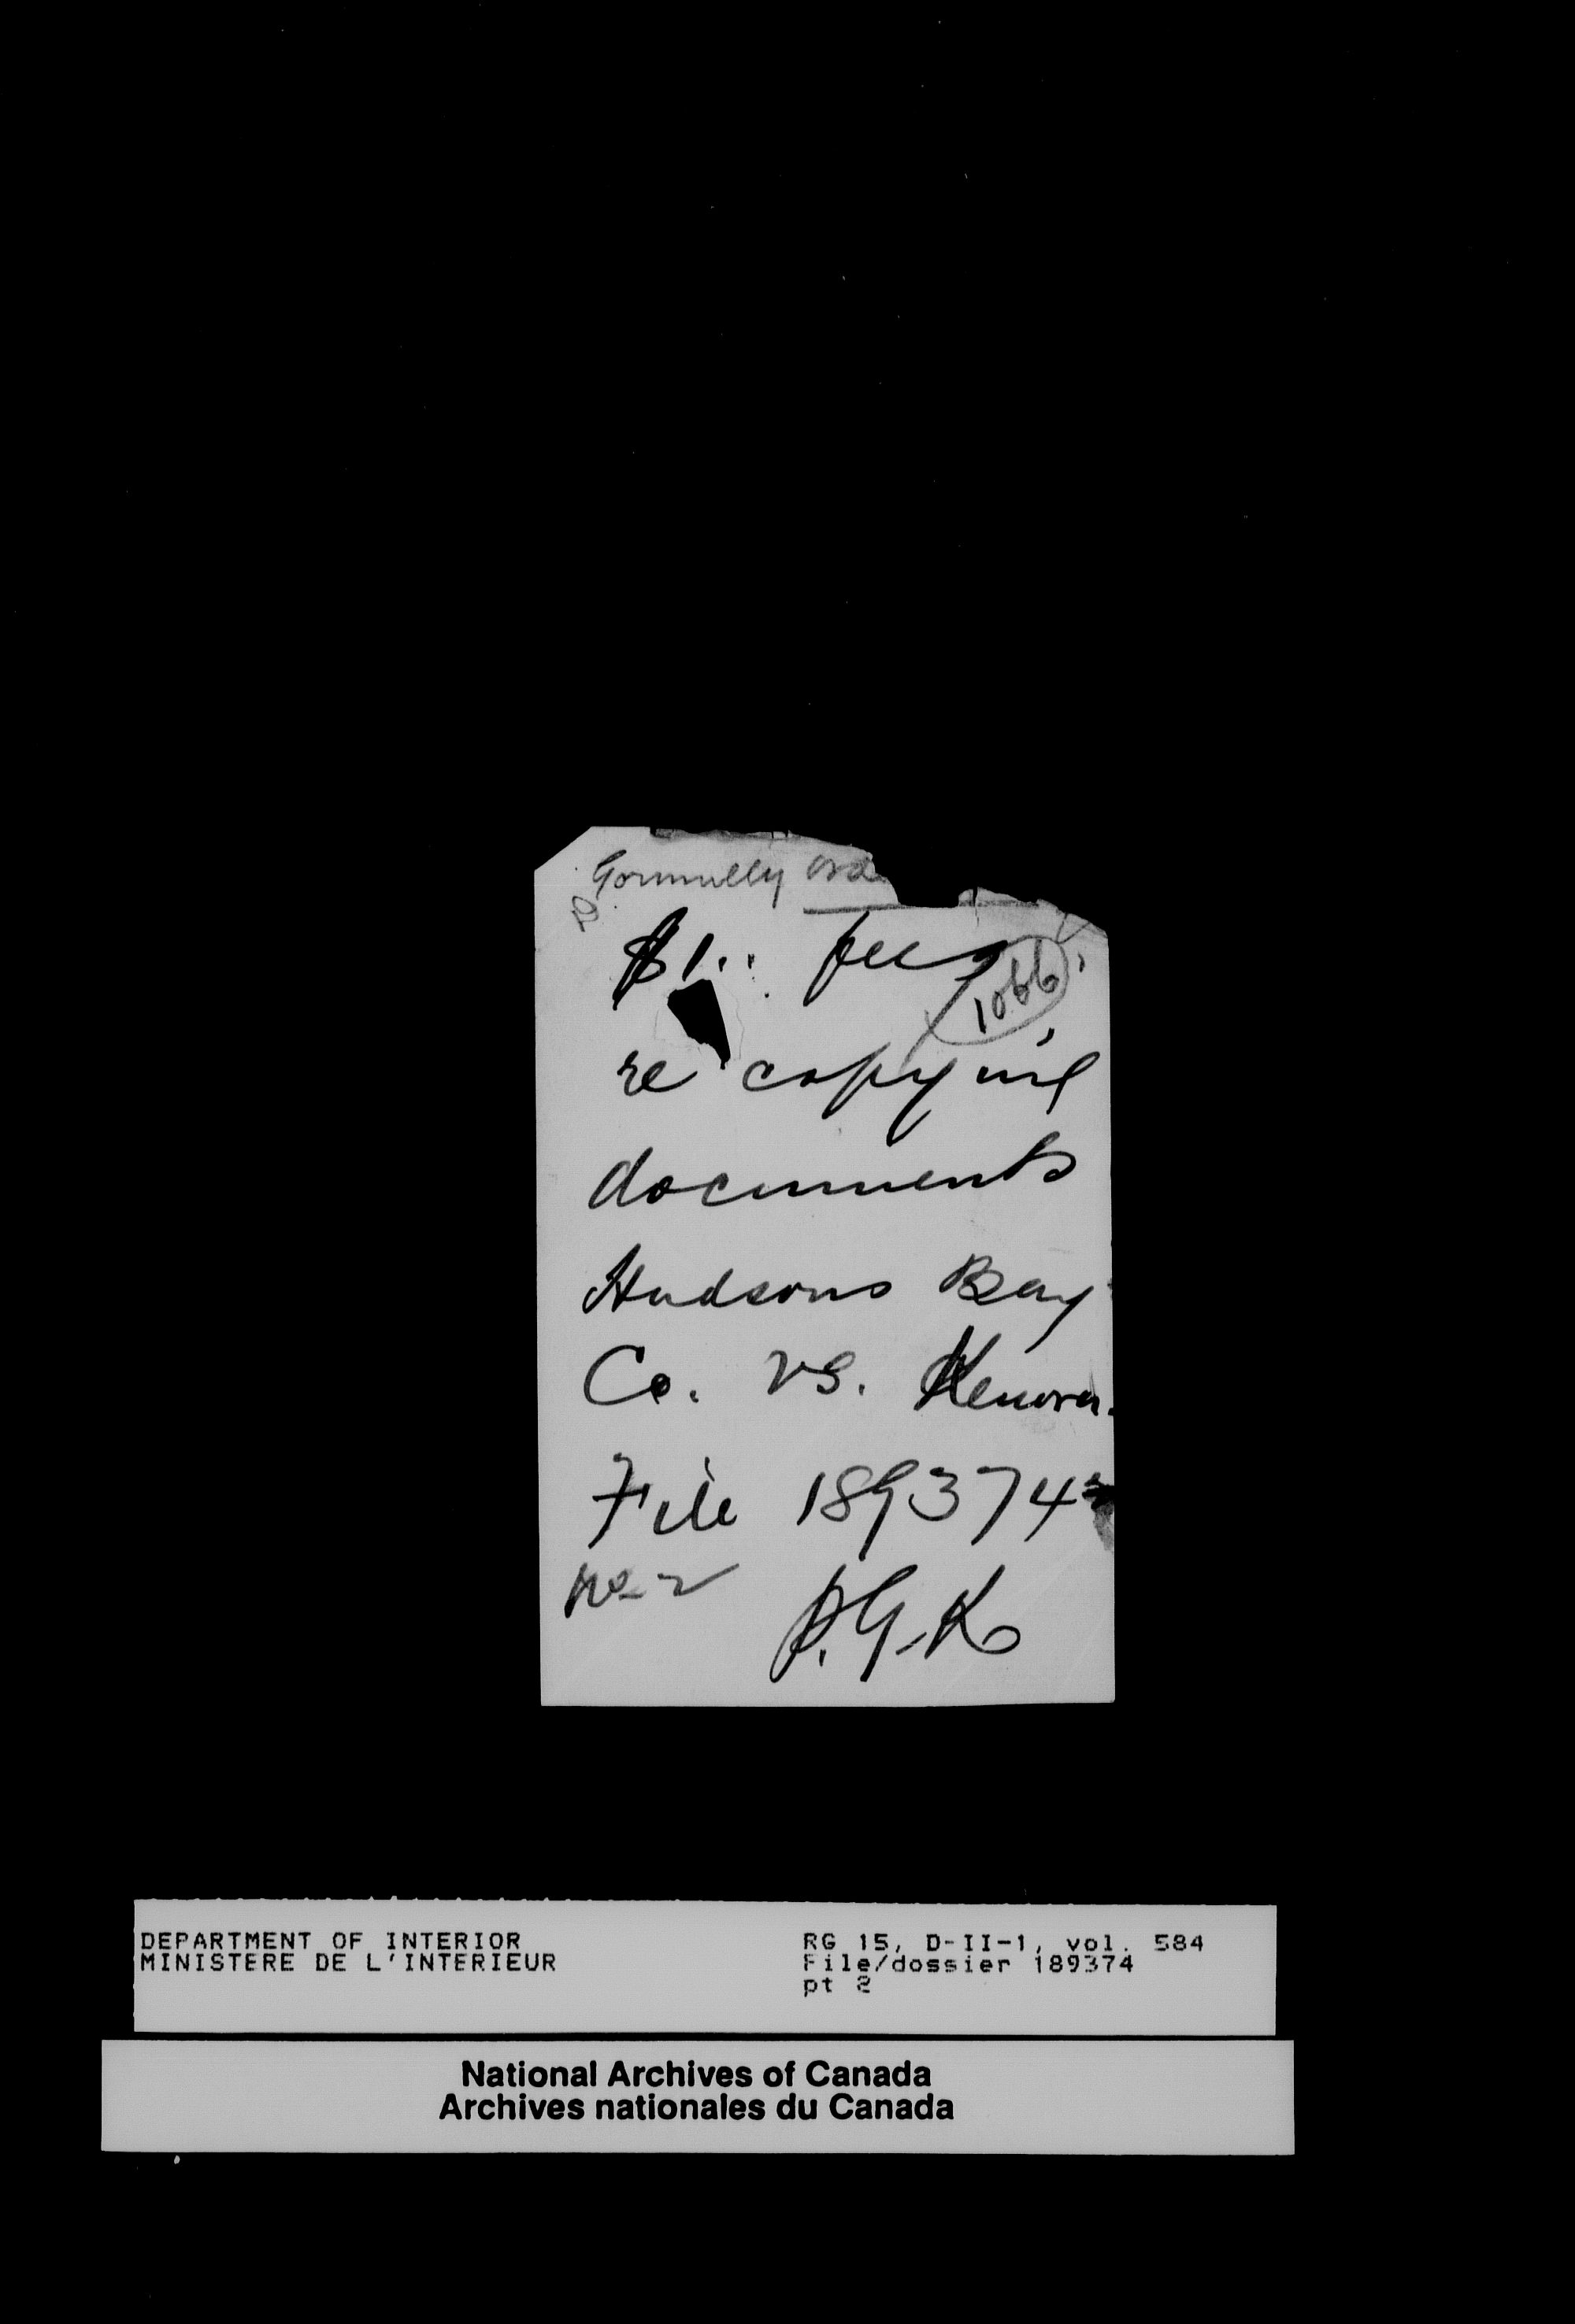 Gormully Ord
$1.. fees
1066
re copying
documents
Hudsons Bay
Co. vs. Kenora.
File 189374
No 2
P.G.K
DEPARTMENT OF INTERIOR
MINISTERE DE L'INTERIEUR
RG 15, D-II-1, vol. 584
File/dossier 189374
pt 2
National Archives of Canada
Archives nationales du Canada